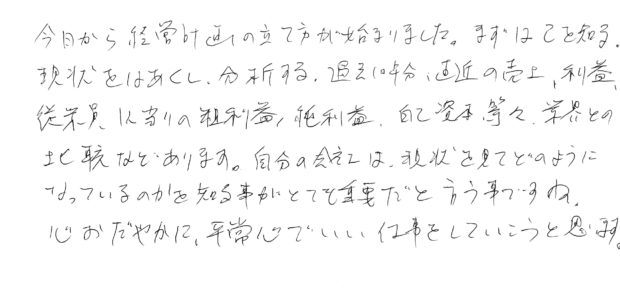 今日から経営計画の立て方が始まりました。まずは己を知る。
現状をはあくし、分析する。過去10年分、直近の売上、利益、
従業員1人当りの粗利益、純利益、自己資本等々、業界との
比較などあります。自分の会社は、現状を見てどのように
なっているのかを知る事がとても重要だと言う事ですね。
心おだやかに、平常心でいい仕事をしていこうと思います。